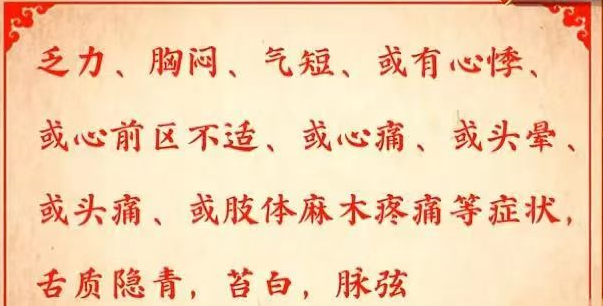 乏力、胸闷、气短、或有心悸、
或心前区不适、或心痛、或头晕、
或头痛、或肢体麻木疼痛等症状，
舌质隐青，苔白，脉弦